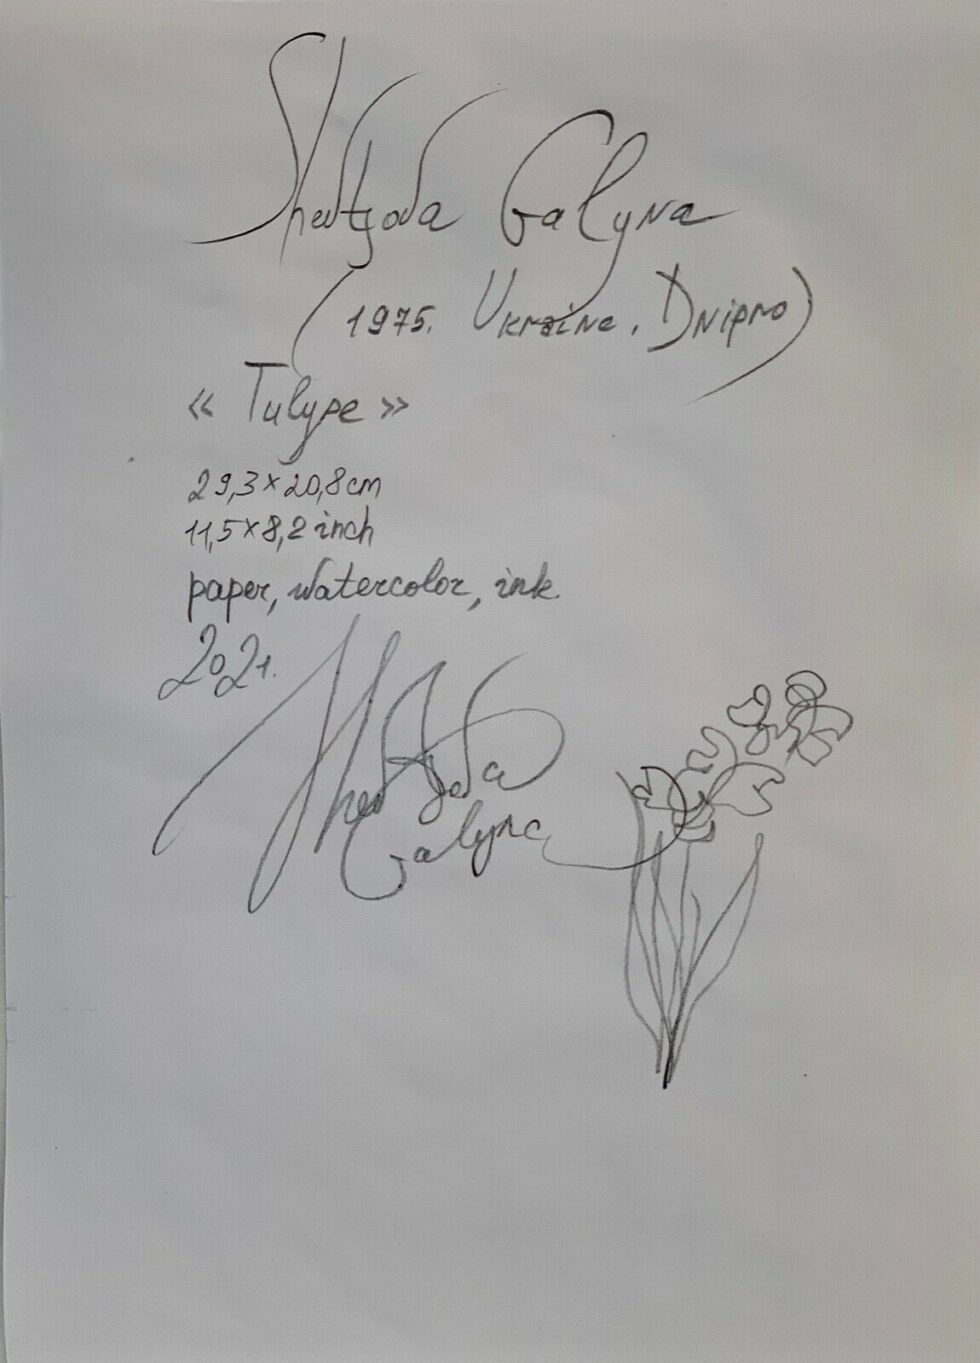 Galyna
(1975. Ukraine. Dnipro)
« Tulype »
29,3×20,8cm
11,5×8,2 inch
paper, watercolor, ink.
2021.
Galyna